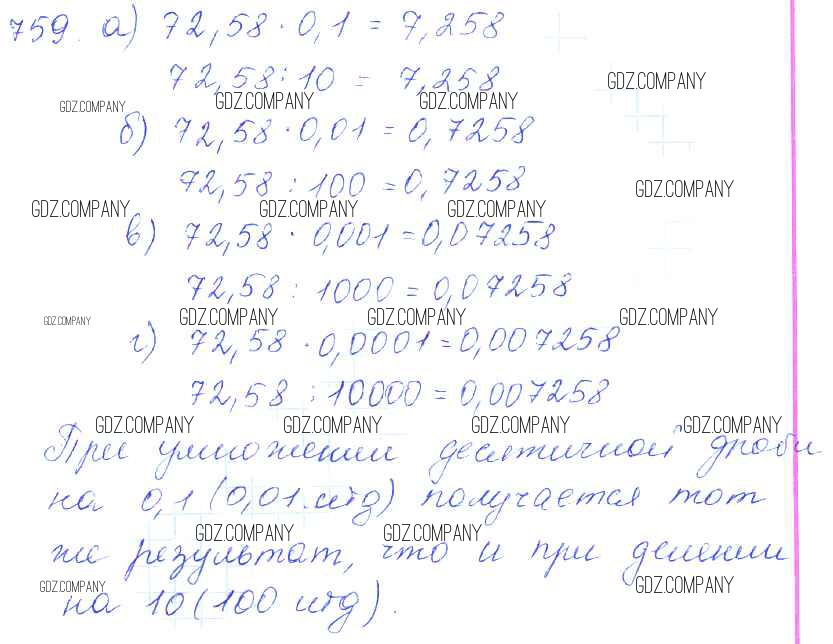 759. а) 72,58 · 0,1 = 7,258
72,58 : 10 = 7,258
GDZ.COMPANY
GDZ.COMPANY GDZ.COMPANY GDZ.COMPANY
б) 72,58 · 0,01 = 0,7258
72,58 : 100 = 0,7258
GDZ.COMPANY
GDZ.COMPANY GDZ.COMPANY GDZ.COMPANY
в) 72,58 · 0,001 = 0,07258
72,58 : 1000 = 0,07258
GDZ.COMPANY GDZ.COMPANY GDZ.COMPANY GDZ.COMPANY
г) 72,58 · 0,0001 = 0,007258
72,58 : 10000 = 0,007258
GDZ.COMPANY GDZ.COMPANY GDZ.COMPANY GDZ.COMPANY
При умножении десятичной дроби
на 0,1 (0,01 итд) получается тот
GDZ.COMPANY GDZ.COMPANY
же результат, что и при делении
GDZ.COMPANY GDZ.COMPANY
на 10 (100 итд).